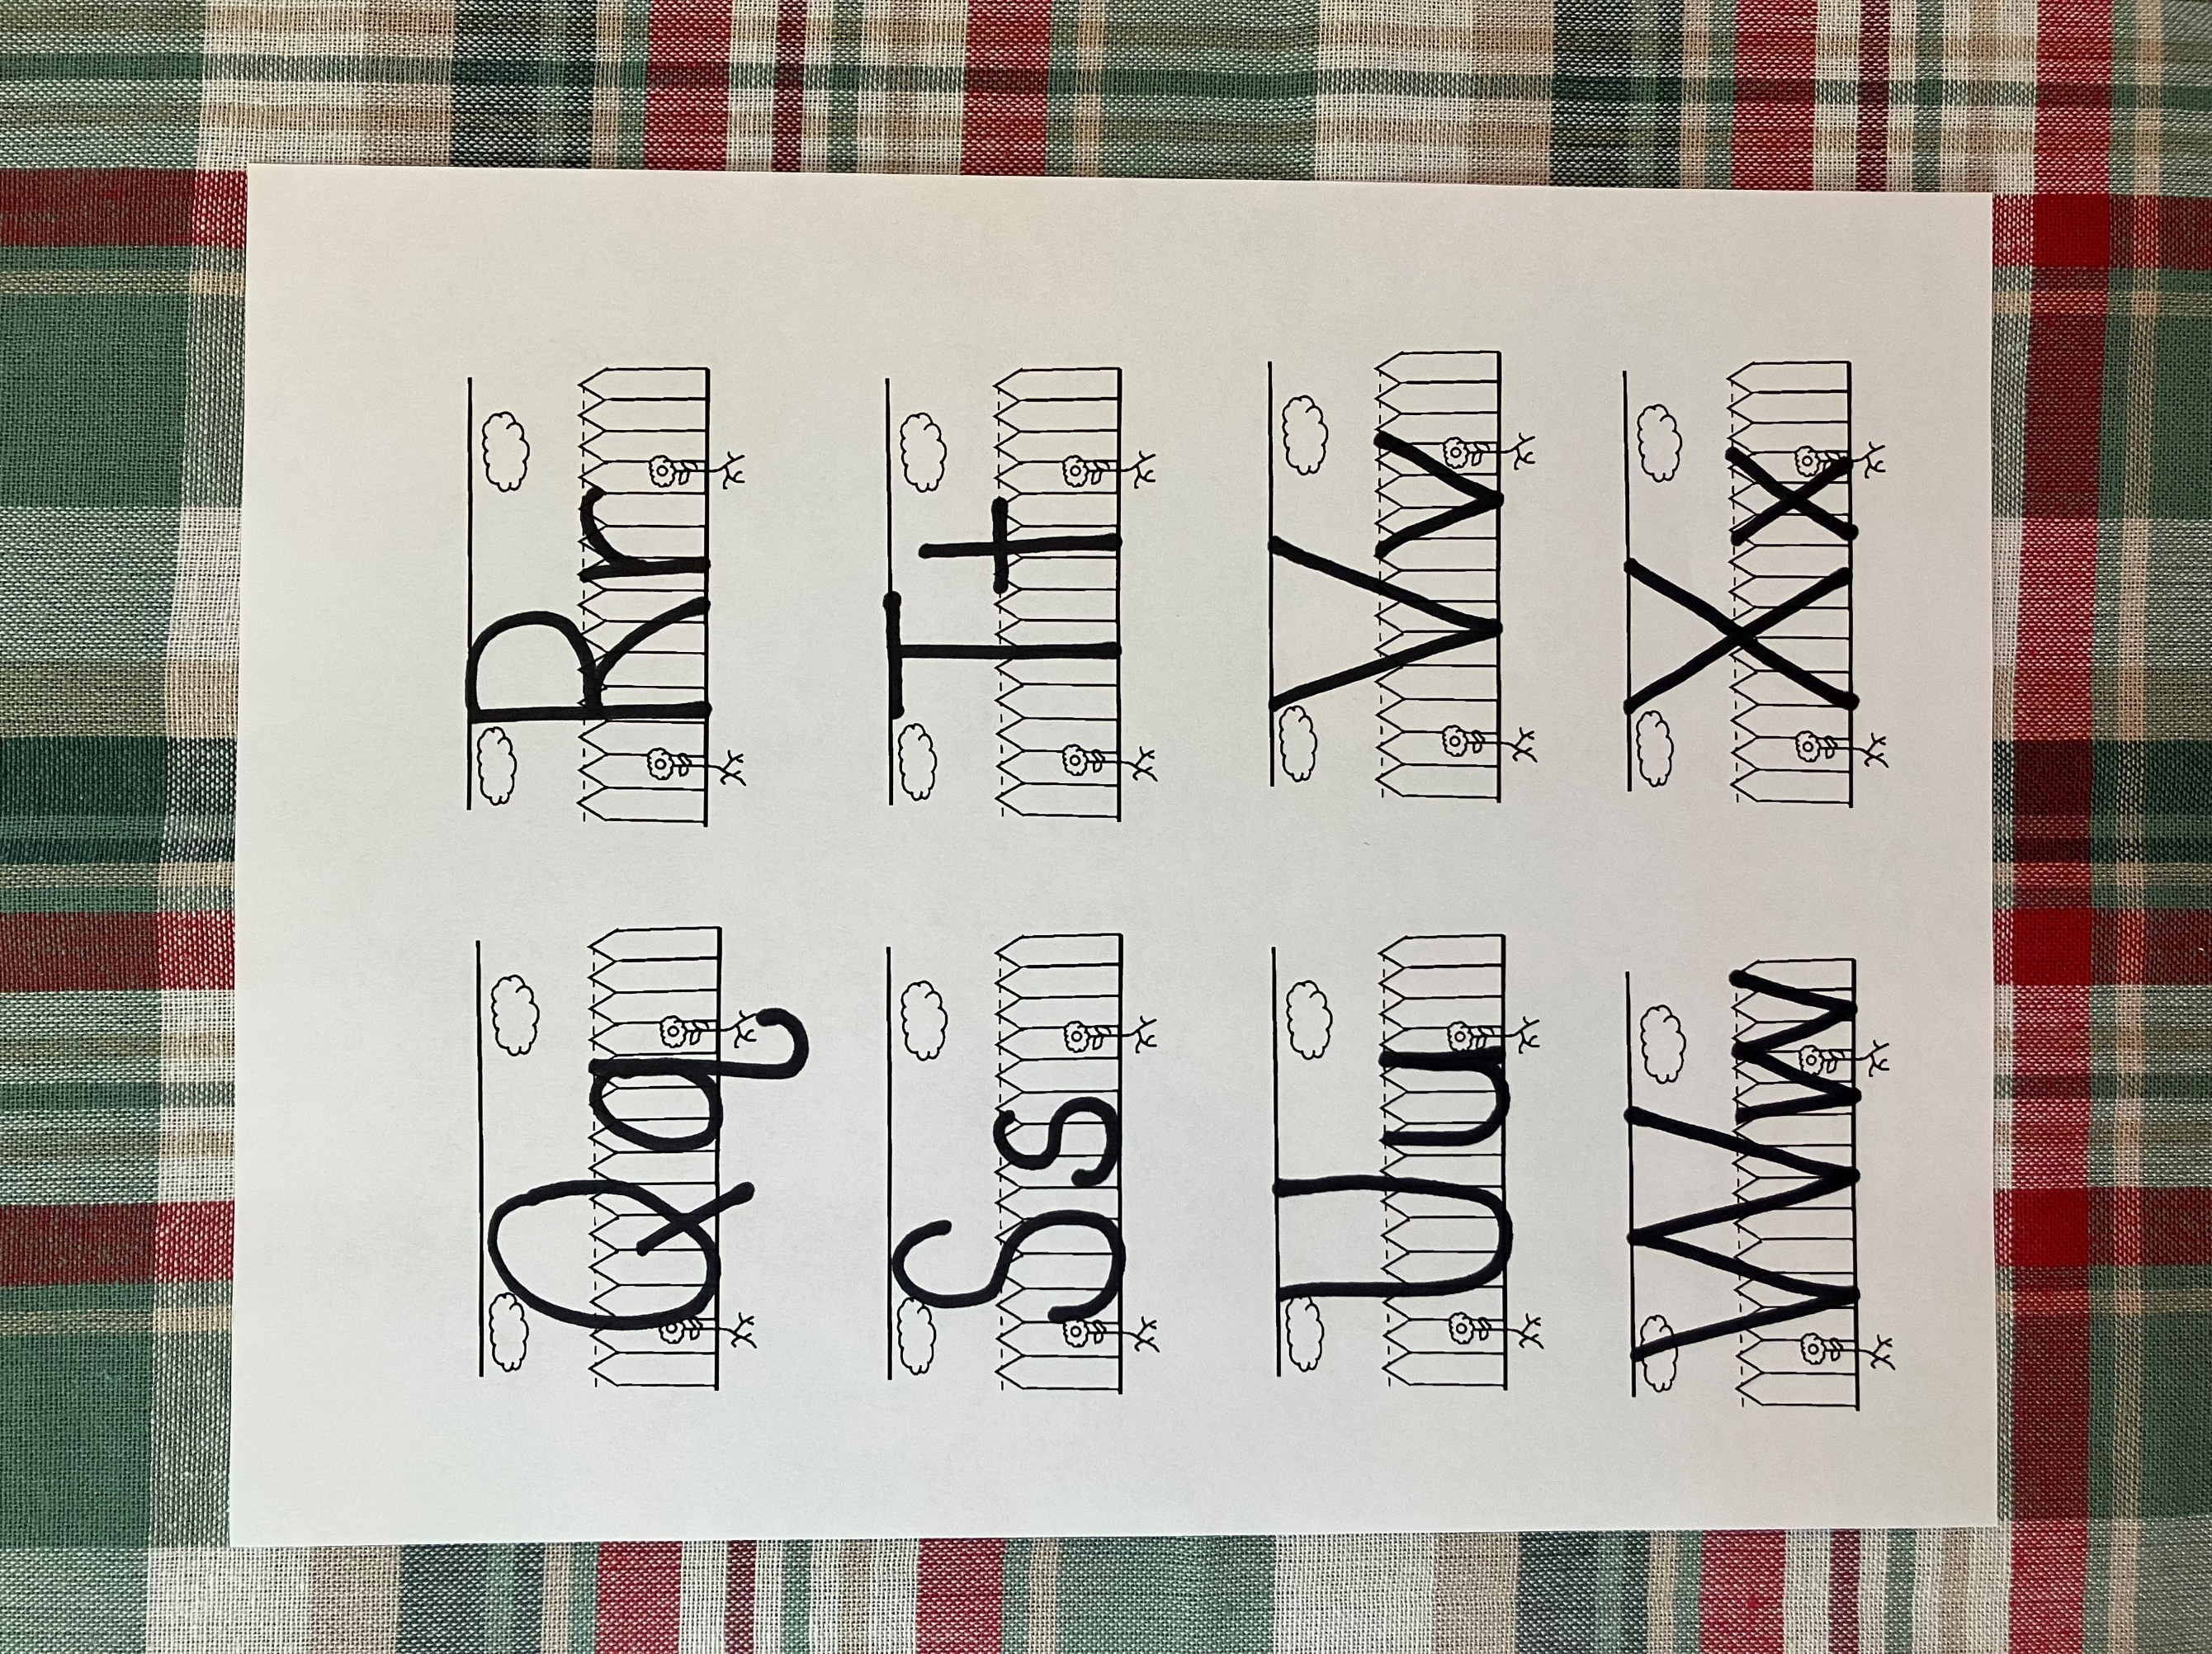 Qq Rr
Ss Tt
Uu Vv
Ww Xx